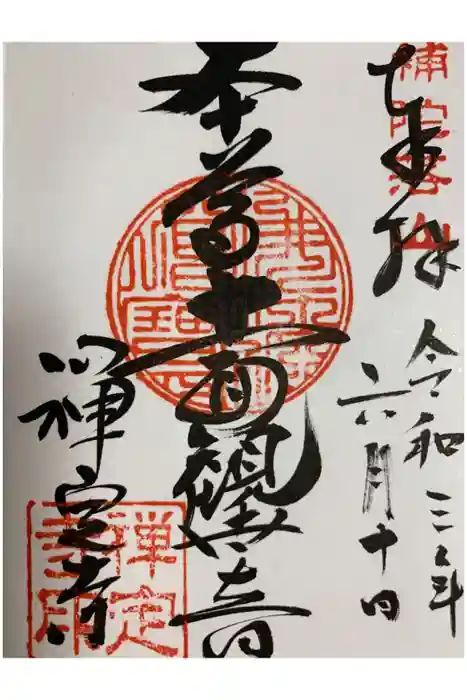 奉拝
補陀落山
令和三年
六月十日
本尊十一面観音
禅定寺
禅定
寺印